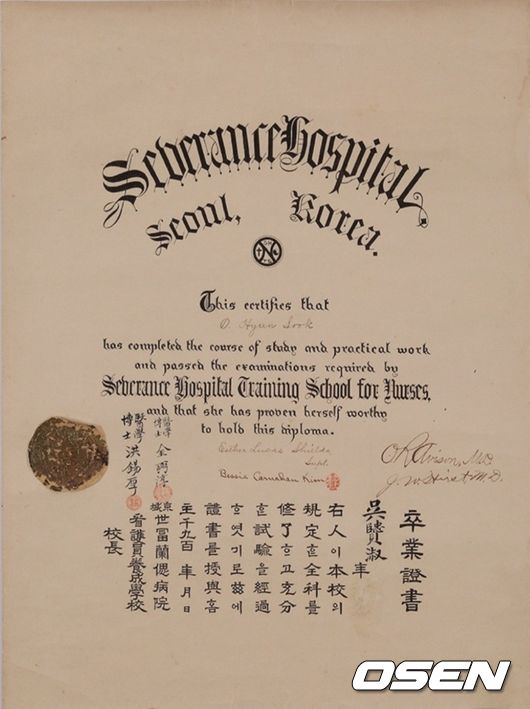 Severance Hospital
Seoul, Korea.
This certifies that
O. Hyun Sook
has completed the course of study and practical work
and passed the examinations required by
Severance Hospital Training School for Nurses,
and that she has proven herself worthy
to hold this diploma.
Esther Lucas Shields
Supt.
Bessie Carnahan Kim
O R Avison, M.D.
J. W. Hirst M.D.
卒業證書
吳賢淑
年
右人이本校의
規定ᄒᆞᆫ全科를
修了ᄒᆞ고充分
ᄒᆞᆫ試驗을經過
ᄒᆞ엿기로玆에
證書를授與홈
主千九百 年 月 日
京城
世富蘭偲病院
看護員養成學校
校長
醫學博士 洪錫厚
OSEN